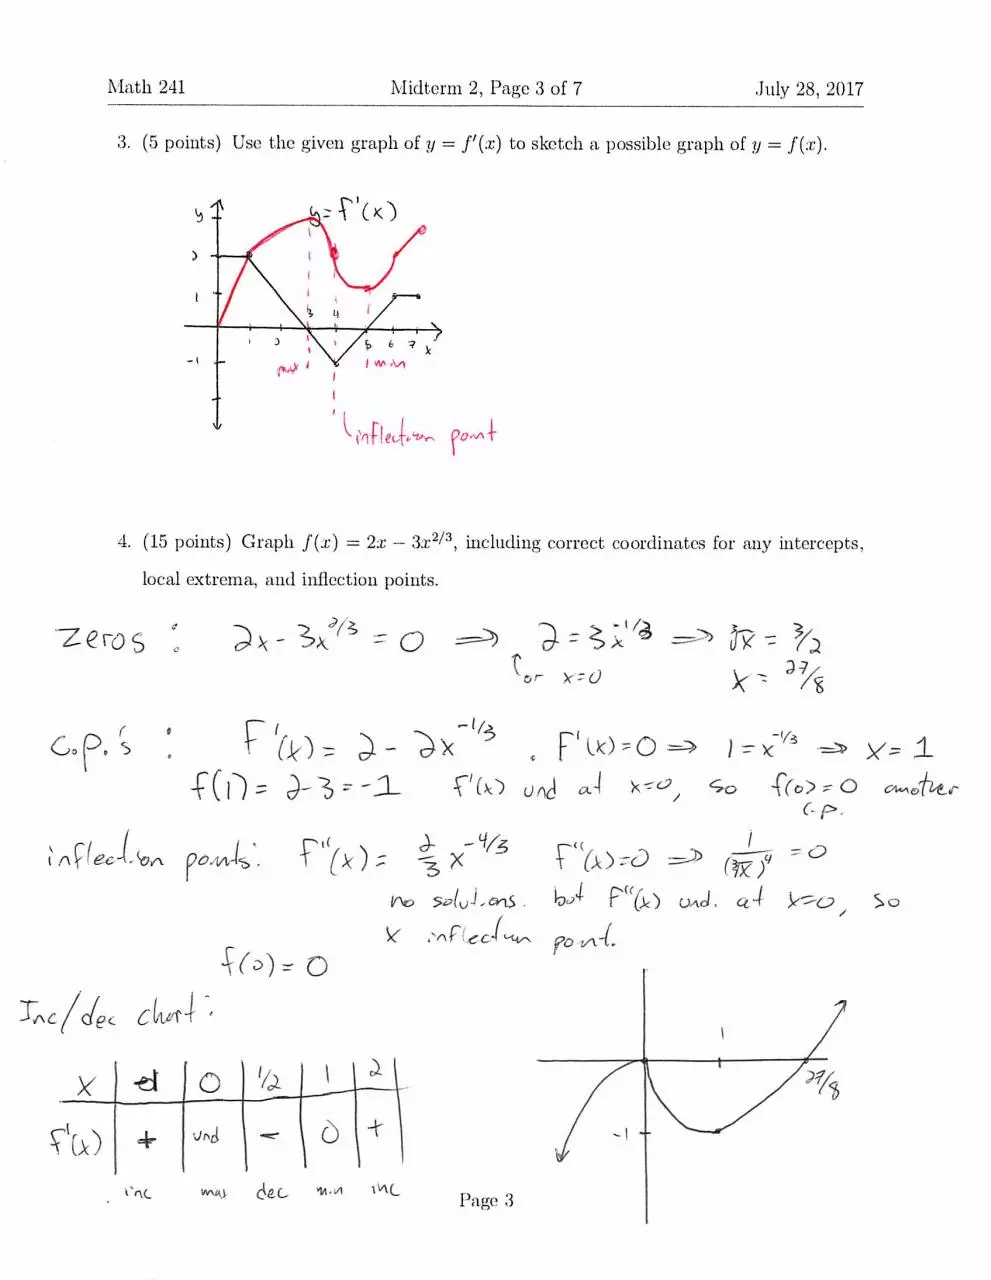 Math 241 Midterm 2, Page 3 of 7 July 28, 2017
3. (5 points) Use the given graph of y = f′(x) to sketch a possible graph of y = f(x).
y y=f'(x)
2
1 3 4
1 2 5 6 7 x
-1 max min
inflection point
4. (15 points) Graph f(x) = 2x − 3x^{2/3}, including correct coordinates for any intercepts,
local extrema, and inflection points.
zeros : 2x - 3x^{2/3} = 0 ⇒ 2 = 3x^{-1/3} ⇒ ∛x = 3/2
↑or x=0 x = 27/8
c.p.'s : f'(x) = 2 - 2x^{-1/3} . f'(x)=0 ⇒ 1 = x^{-1/3} ⇒ x = 1
f(1) = 2-3 = -1 f'(x) und at x=0, so f(0)=0 another
c.p.
inflection points: f''(x) = 2/3 x^{-4/3} f''(x)=0 ⇒ 1/(∛x)^4 = 0
no solutions. but f''(x) und. at x=0, so
x inflection point.
f(0) = 0
Inc/dec chart:
x 0 1/2 1 2
f'(x) + und - 0 +
inc max dec min inc
1
27/8
-1
Page 3